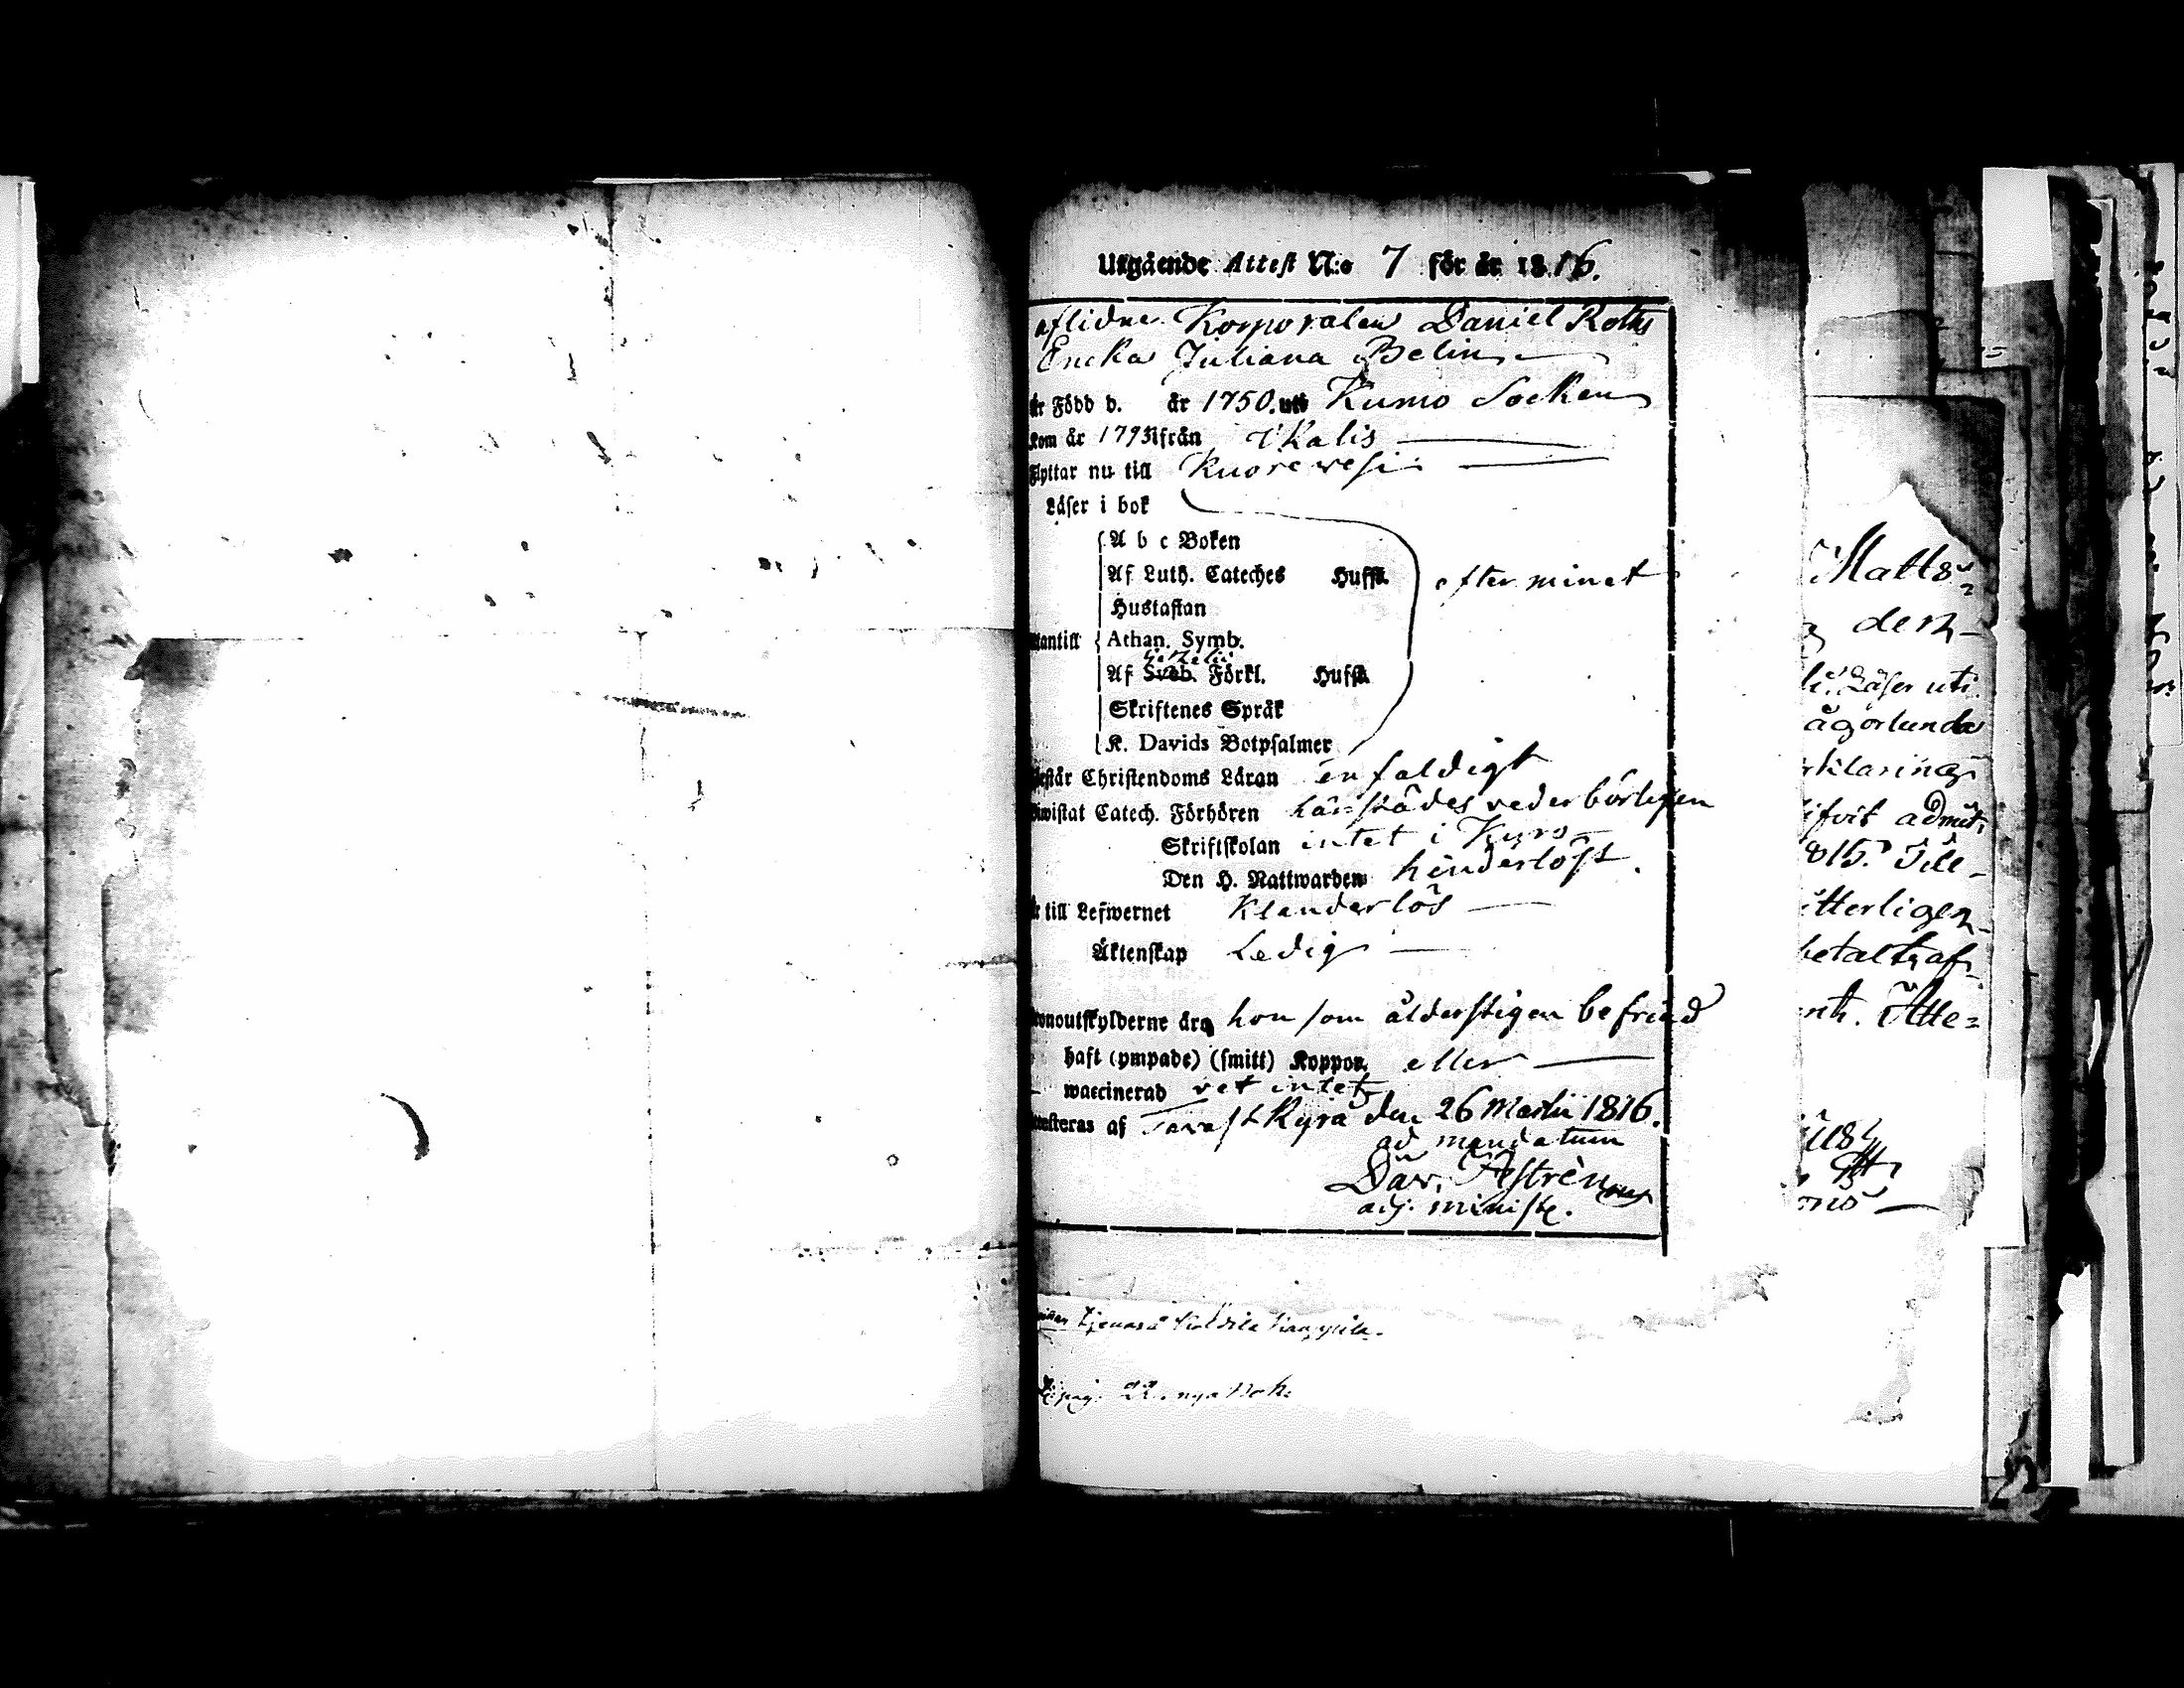 Utgående Attest N:o 7 för år 1816.
aflidne Korporalen Daniel Roths
Encka Juliana Belin
är Född d. år 1750. uti Kumo Socken
kom år 1793 ifrån Ikalis
Flyttar nu till Kuorevesi
Läser i bok
A b c Boken
Af Luth. Cateches Hufst. efter minet
Hustaflan
Utantill Athan. Symb.
Af Sveb. Förkl. Hufst.
Skriftenes Språk
K. Davids Botpsalmer
Förstår Christendoms Läran enfaldigt
Biwistat Catech. Förhören härstädes vederbörligen
Skriftskolan intet i Kyro
Den H. Nattwarden hinderlöst.
är till Lefwernet Klanderlös
Äktenskap Ledig
Kronoutskylderne äro hon som ålderstigen befriad
haft (ympade) (smitt) Koppor eller
waccinerad vet intet
Attesteras af Tavast Kyrö den 26 Martii 1816.
ad mandatum
Dav. Astrenius
adj. minist.
Matts
den
Läser uti
ågorlunda
rklaring
ifvit admit
815. Till
itterligen
betalt, af
Atte=